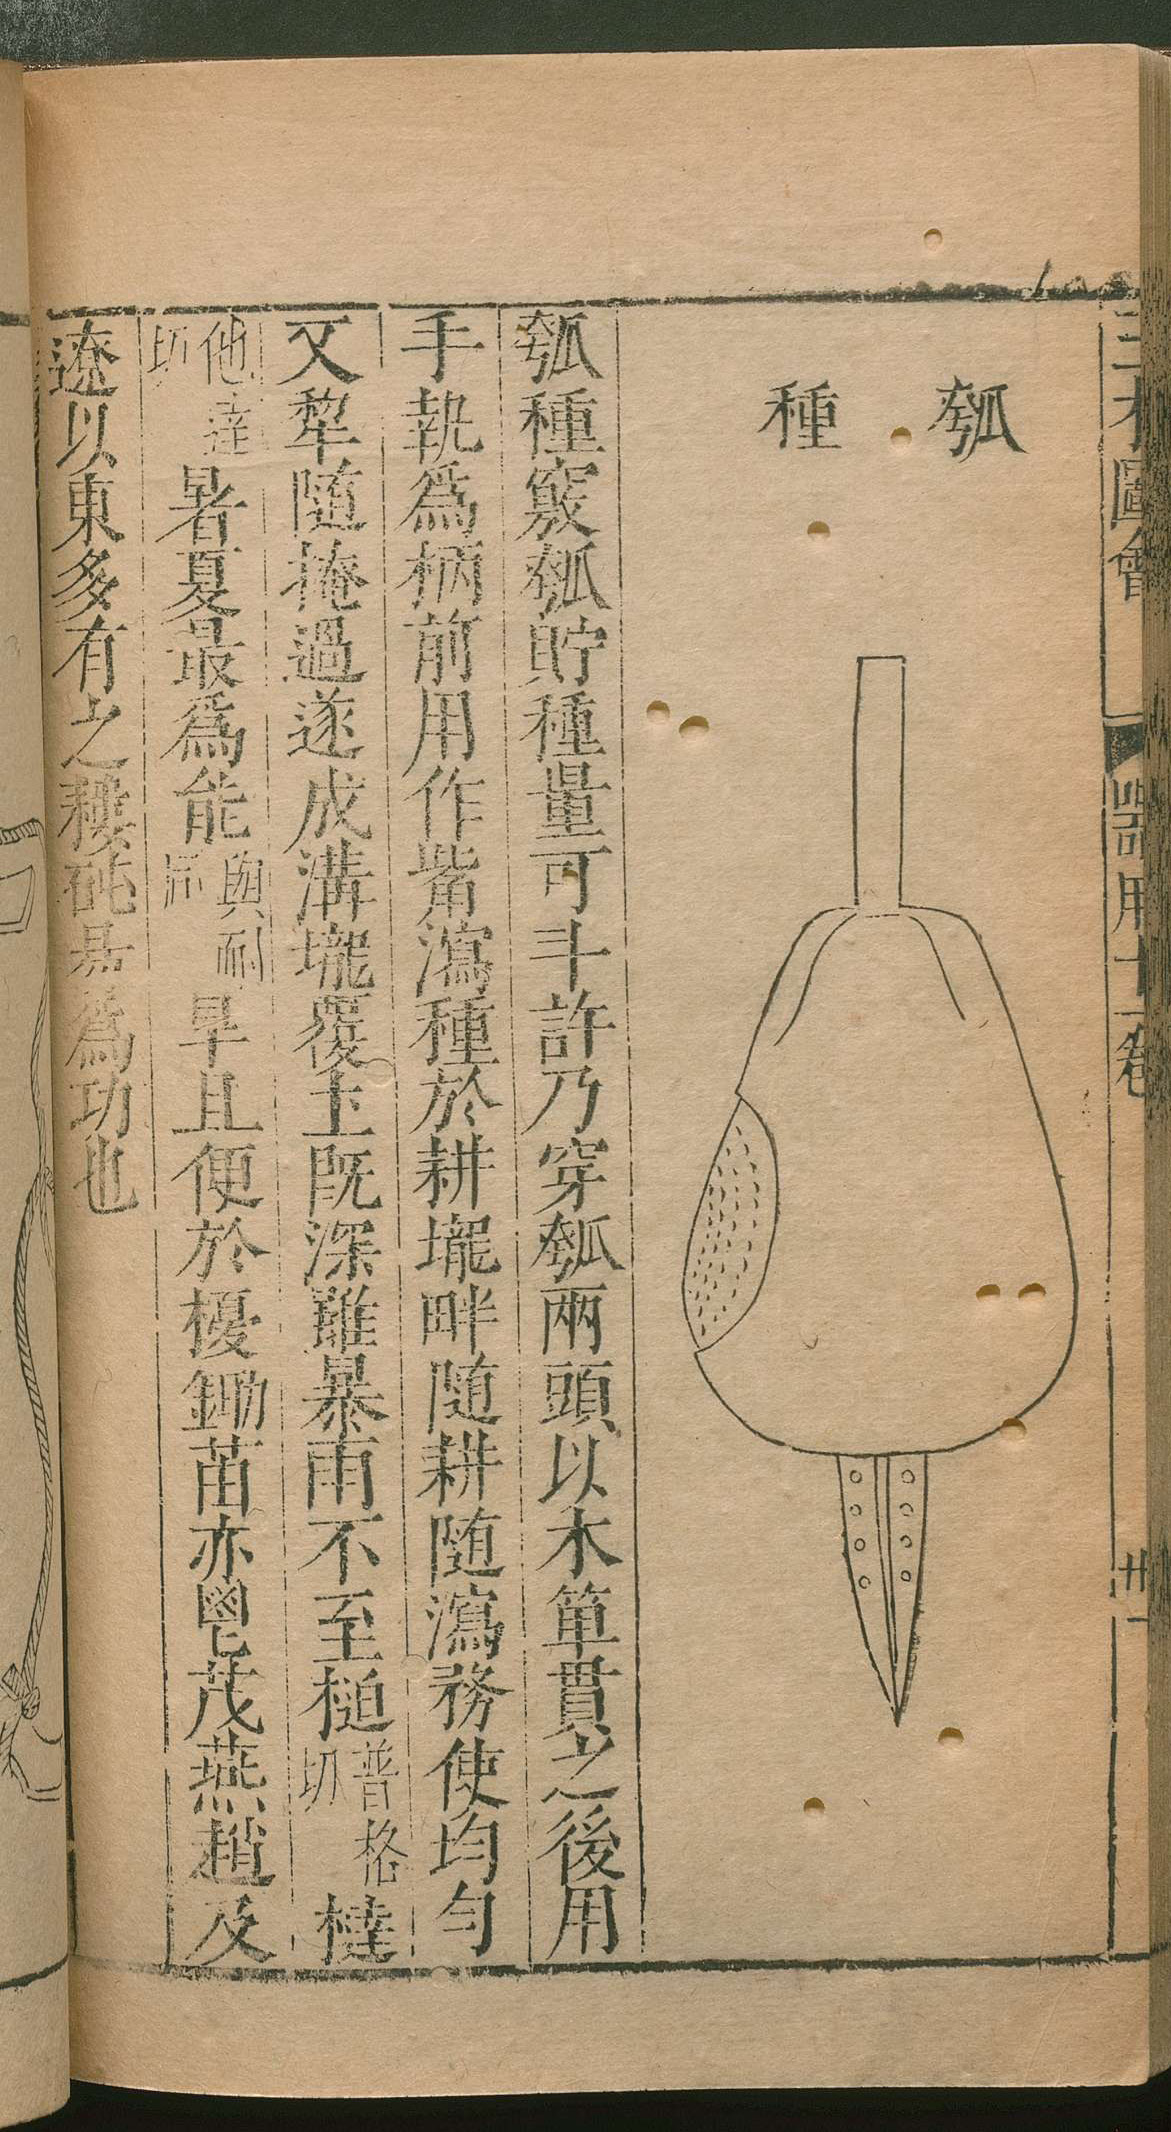 三才圖會
器用十二卷
卅一
瓠種
瓠種竅瓠貯種量可斗許乃穿瓠兩頭以木箄貫之後用
手執為柄前用作觜瀉種於耕壠畔随耕随瀉務使均勻
又犂随掩過遂成溝壠覆土既深雖暴雨不至搥普格切撻
他達切暑夏最為能與耐同旱且便於櫌鋤苗亦鬯茂燕趙及
遼以東多有之耬砘最為功也